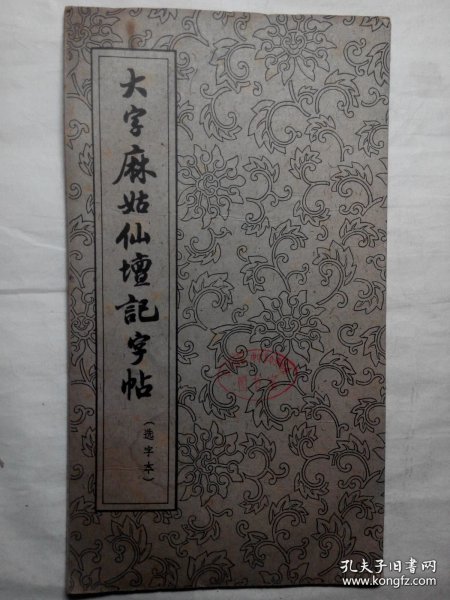 大字麻姑仙壇記字帖
（选字本）
孔夫子旧书网
www.kongfz.com